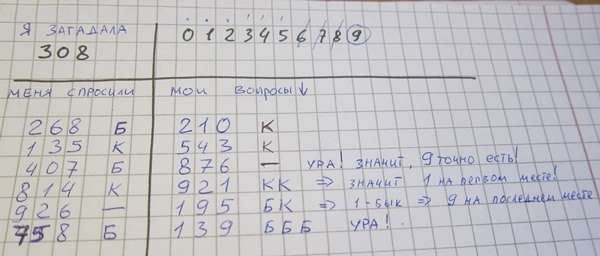 Я ЗАГАДАЛА
308
0 1 2 3 4 5 6 7 8 9
МЕНЯ СПРОСИЛИ
МОИ ВОПРОСЫ↓
268 Б
210 К
135 К
543 К
407 Б
876 — УРА! ЗНАЧИТ, 9 ТОЧНО ЕСТЬ!
814 К
921 КК ⇒ ЗНАЧИТ 1 НА ПЕРВОМ МЕСТЕ!
926 —
195 БК ⇒ 1-БЫК ⇒ 9 НА ПОСЛЕДНЕМ МЕСТЕ
758 Б
139 БББ УРА!